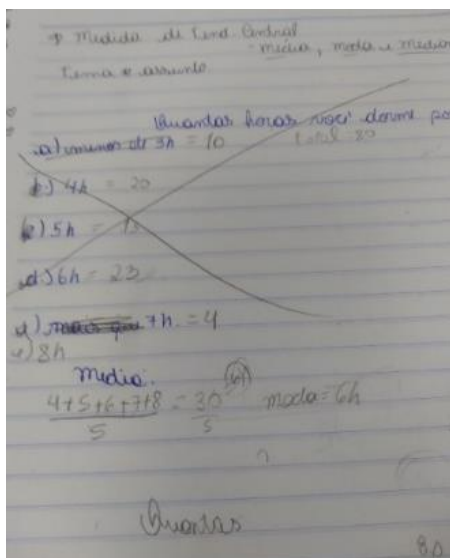 → Medida de Tend. Central
- média, moda e mediana
Tema e assunto
Quantas horas você dorme po
a) menos de 3h = 10 total: 80
b) 4h = 20
c) 5h = 13
d) 6h = 23
7h = 4
e) 8h
Media:
4+5+6+7+8 = 30 (6) moda = 6h
5 5
Quantas
80